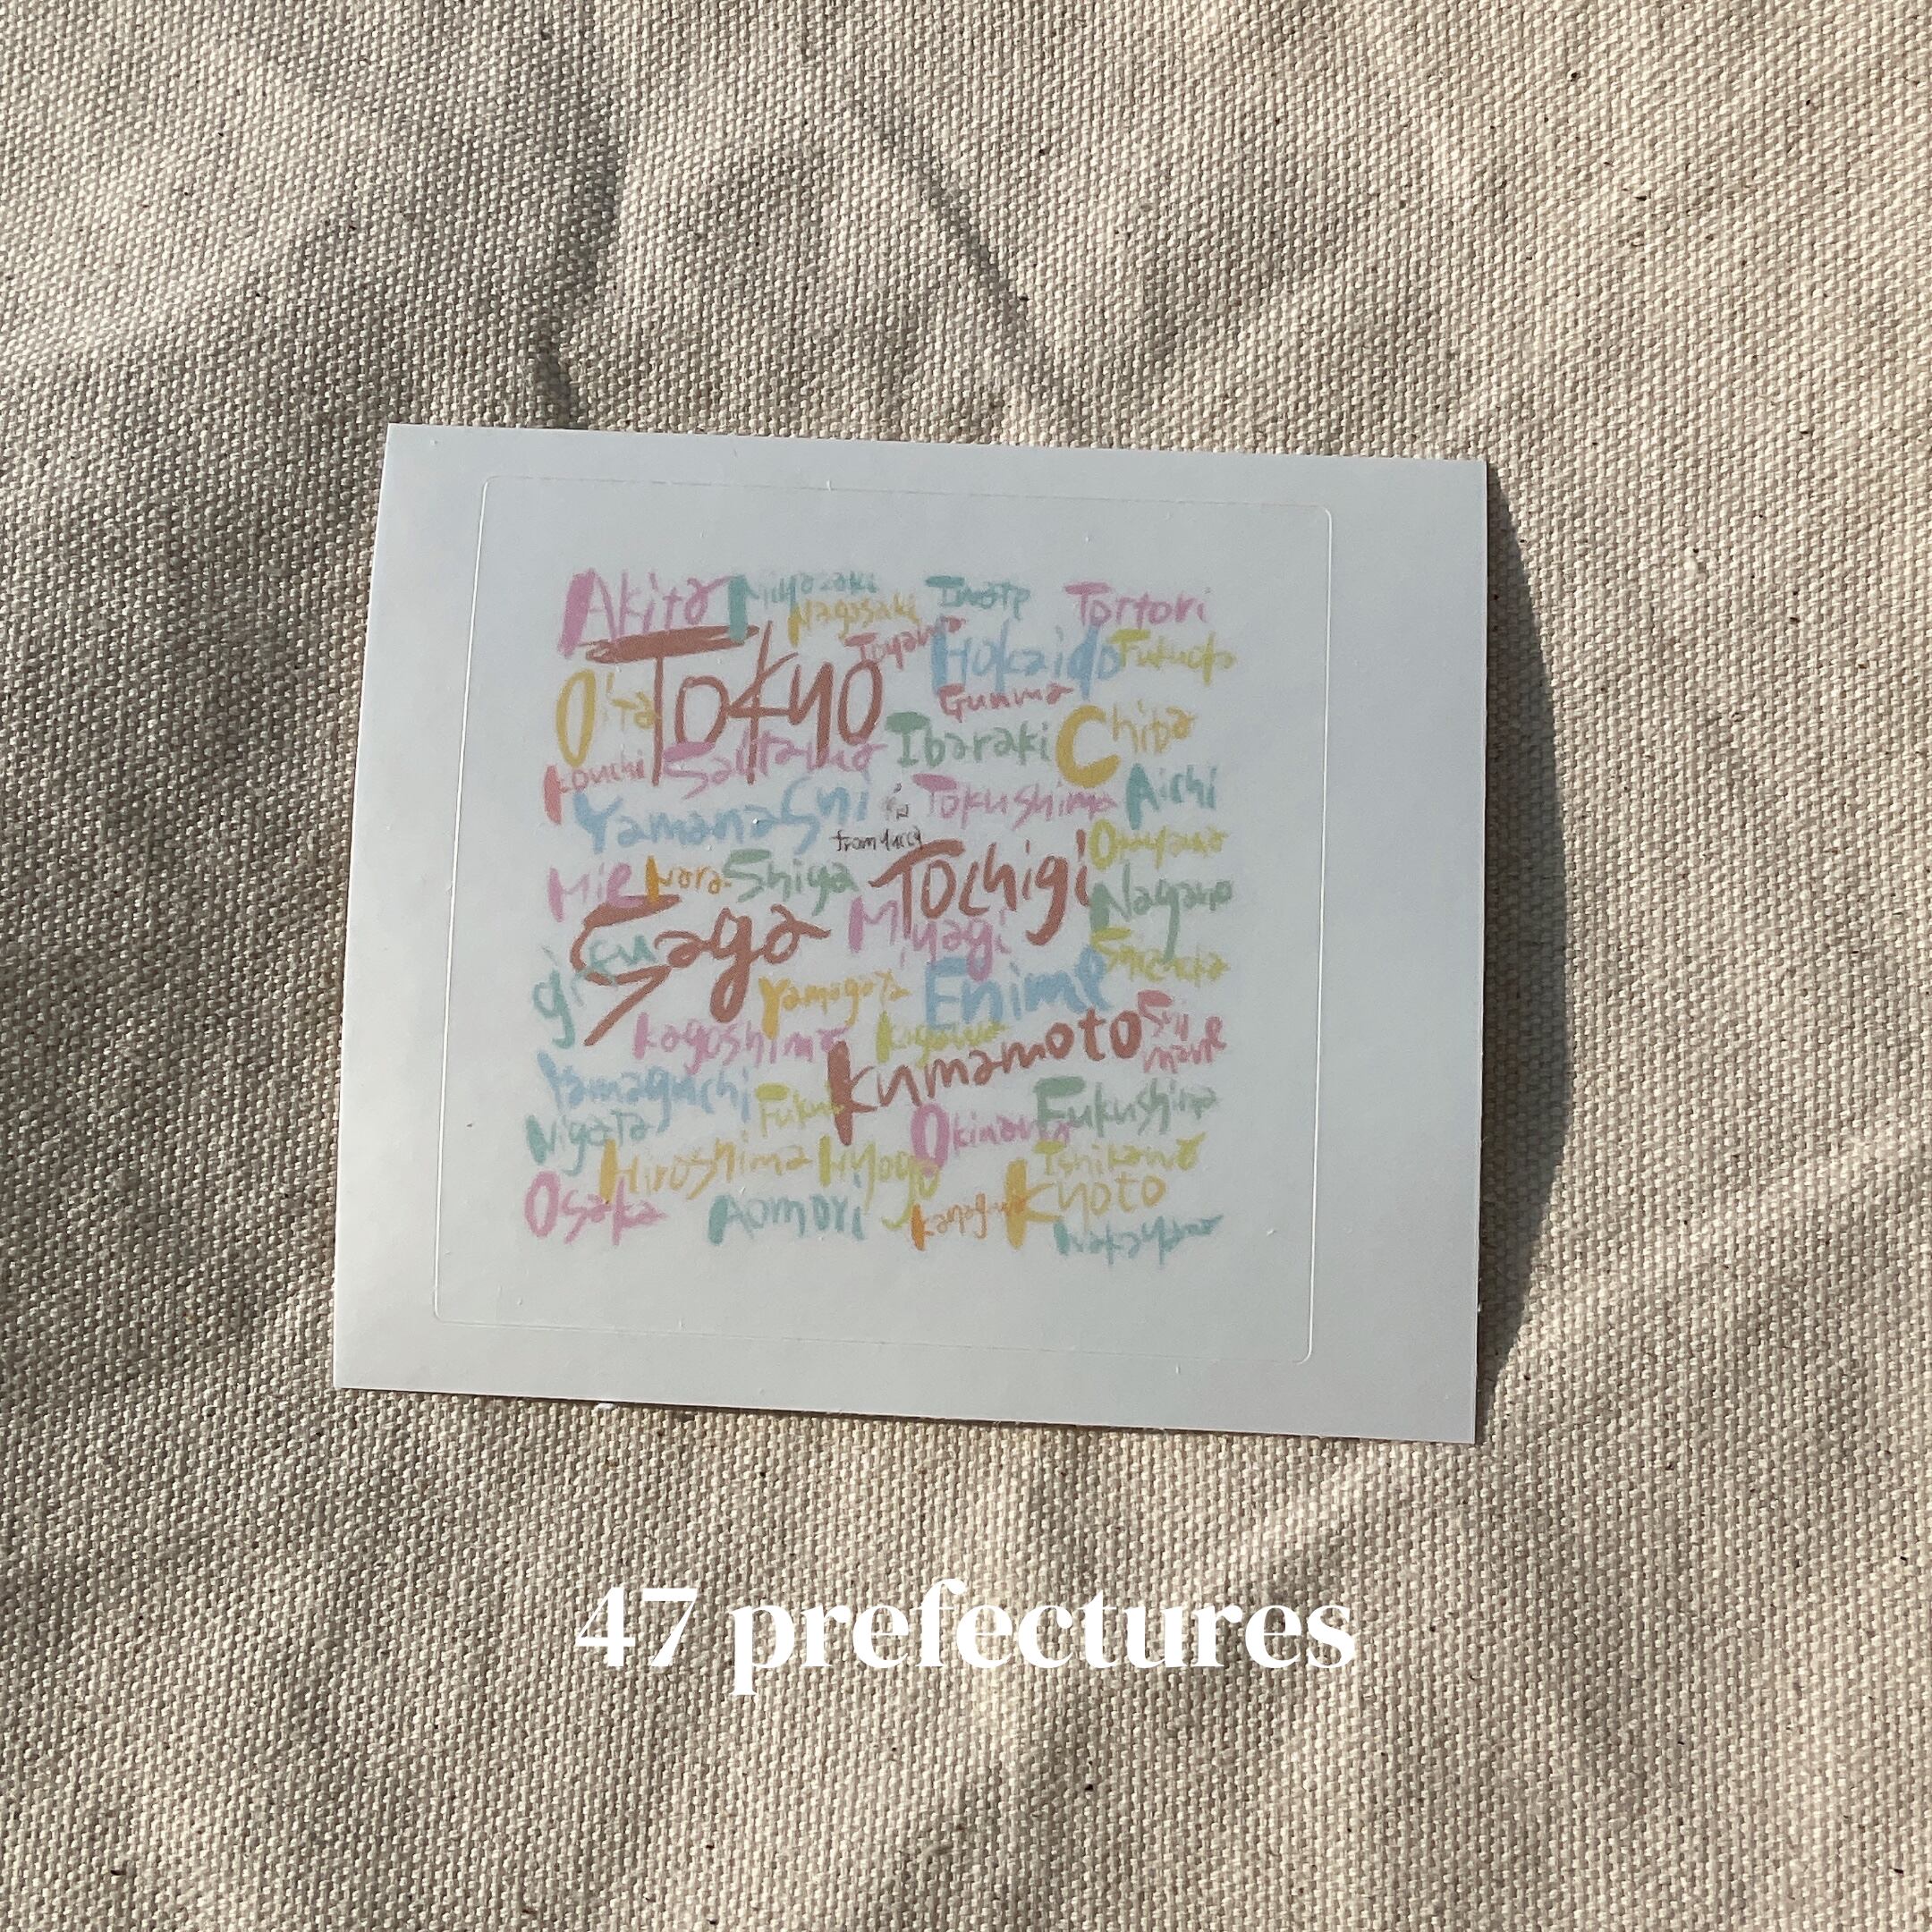 Akita Miyazaki Iwate Tottori
Nagasaki
Toyama Hokaido Fukuoka
Oita Tokyo Gunma
Ibaraki Chiba
kouchi Saitama
Yamanashi Tokushima Aichi
from
Okayama
Mie Nara Shiga Tochigi
Nagano
Saga Miyagi
gifu Shizuoka
Yamagata Ehime
kagoshima kumamoto Shi
mane
Yamaguchi Fukushima
Nigata Fukui Okinawa
Hiroshima Hyogo Ishikawa
Osaka Aomori kanagawa kyoto
wakayama
47 prefectures